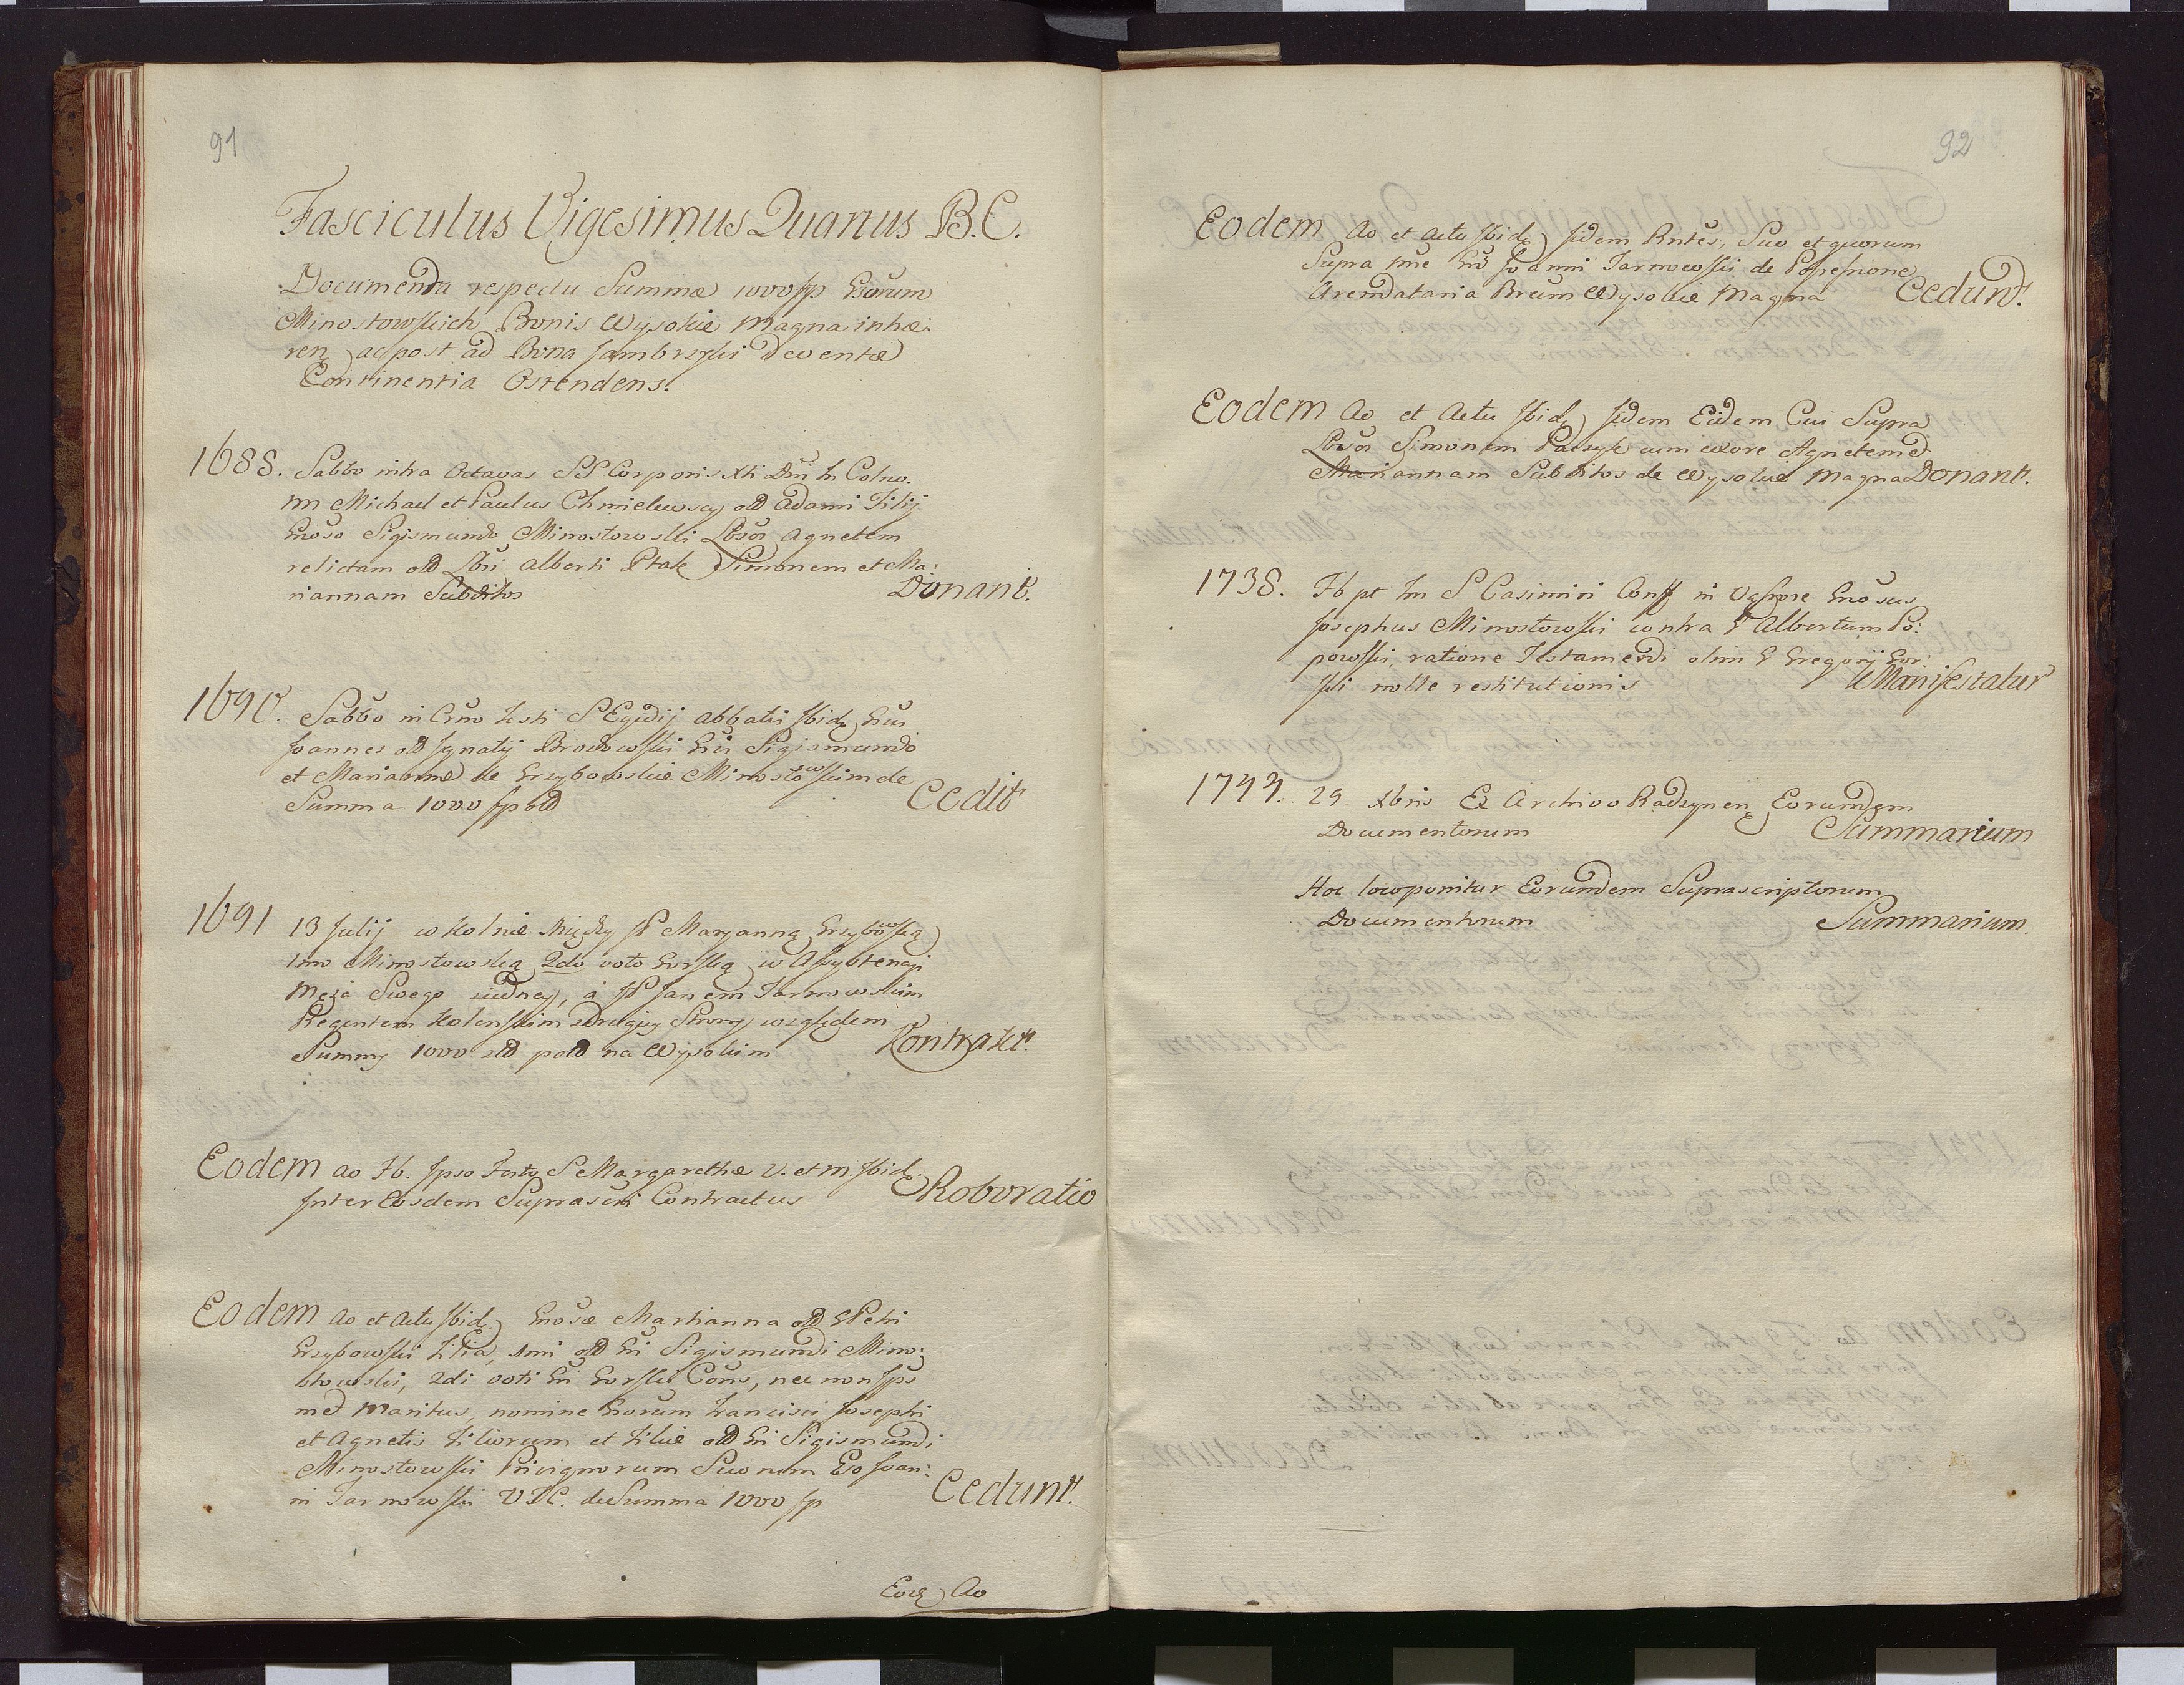 91
Fasciculus Vigesimus Quartus B.C.
Documenta respectu Summæ 1000 fp
Minostowskich Bonis Wysokie Magna inhæ:
ren ac post ad Bona Jambrzyki devente
Continentia Ostendens.
1688. Sabbo intra Octavas SS Corporis Xti Dni in Colno.
nn Michael et Paulus Chmielewscy olim Adami Filij
Gnoso Sigismundo Minostowski Lbsos Agnetem
relictam olim Lbri Alberti Ptak Simonem et Ma:
riannam Subditos Donant.
1690. Sabbo in Crno festi S Egidij Abbatis Ibid
Joannes olim Ignatij Brodowski Gsi Sigismundo
et Mariannæ de Grzybowskie Minostowskim de
Summa 1000 fp Cedit
1691 13 Julij w Kolnie Między JP Maryanną Grzybowską
1mo Minostowską 2do voto Gorską w Assystencyi
Męża Swego iedney, á JP Janem Tarnowskim
Regentem Kolenskim z drugiey Strony względem
Summy 1000 złł poll na Wysokim Kontrakt.
Eodem Ao Fb. Ipso Festo S Margarethæ V. et M. Ibid.
Inter Eosdem Suprascri Contractus Roboratio
Eodem Ao et Actu Ibid. Gnosæ Marianna olim G Petri
Grzybowski Filia, 1mi olim Gsi Sigismundi Mino:
stowski, 2di voti Gsi Gorski Cons, nec non Ips
met Maritus, nomine Gnorum Francisci Josephi
et Agnetis Filiorum et Filiæ olim Gsi Sigismundi
Minostowski Privignorum Suorum Gso Joan:
ni Tarnowski V.I.C. de Summa 1000 fp Cedunt.
Eod Ao
92
Eodem Ao et Actu Ibid Iidem Rntes, Suo et quorum
Supra nne Gso Joanni Tarnowski de Possessione
Arendataria Brum Wysokie Magna Cedunt.
Eodem Ao et Actu Ibid Iidem Eidem Cui Supra
Lbsos Simonem Paczyk cum uxore Agnetem et
Mariannam Subditos de Wysokie Magna Donant.
1738. Fb pt fm S Casimiri Conf in Wąsosze Gnosus
Josephus Minostowski contra G Albertum Po:
powski, ratione Testamenti olim G Gregorij Gor:
ski nolle restitutionis Manifestatur
1744. 29 Xbris Ex Archivo Radzynen Eorundem
Documentorum Summarium
Hoc loco ponitur Eorundem Suprascriptorum
Documentorum Summarium.